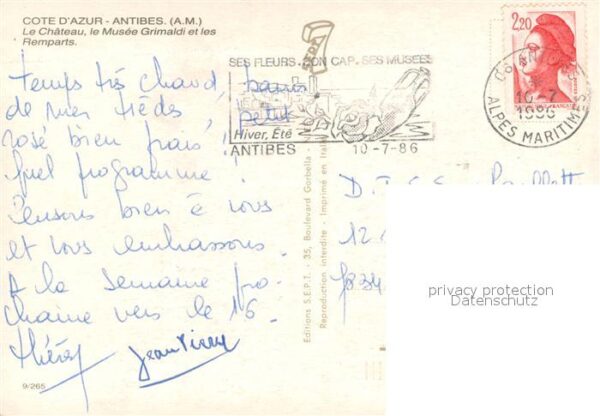 COTE D'AZUR - ANTIBES. (A.M.)
Le Château, le Musée Grimaldi et les
Remparts.
SEPT
7
SES FLEURS. SON CAP. SES MUSEES
Hiver, Été
ANTIBES 10-7-86
2,20
10-7
1986
ALPES MARITIMES
Temps très chaud, bains
de mer tièdes, petit
rosé bien frais !!
Quel programme !
Pensons bien à vous
et vous embrassons.
A la semaine pro-
chaine vers le 16.
Jean Pierre
9/265
Editions S.E.P.T. - 35, Boulevard Gorbella -
Reproduction interdite - Imprimé en Italie
12
privacy protection
Datenschutz